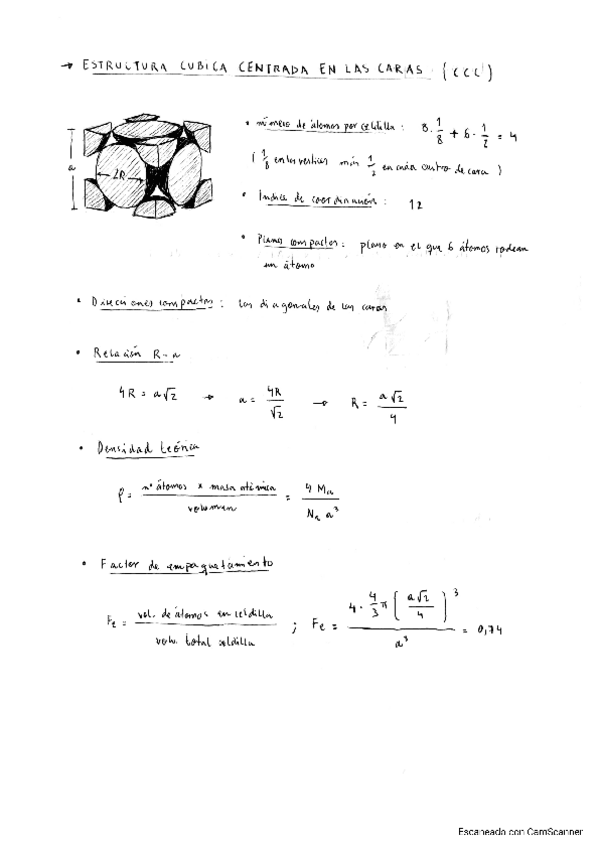 → ESTRUCTURA CUBICA CENTRADA EN LAS CARAS (CCC)
• número de átomos por celdilla : 8 · 1/8 + 6 · 1/2 = 4
( 1/8 en los vertices más 1/2 en cada centro de cara )
a
2R
• Indice de coordinación : 12
• Planos compactos : plano en el que 6 átomos rodean
un átomo
• Direcciones compactas : las diagonales de las caras
• Relación R-a
4R = a√2 → a = 4R/√2 → R = a√2/4
• Densidad teórica
ρ = nº átomos × masa atómica / volumen = 4 Ma / Na a³
• Factor de empaquetamiento
Fe = vol. de átomos en celdilla / volu. total celdilla ; Fe = 4 · 4/3 π ( a√2/4 )³ / a³ = 0,74
Escaneado con CamScanner